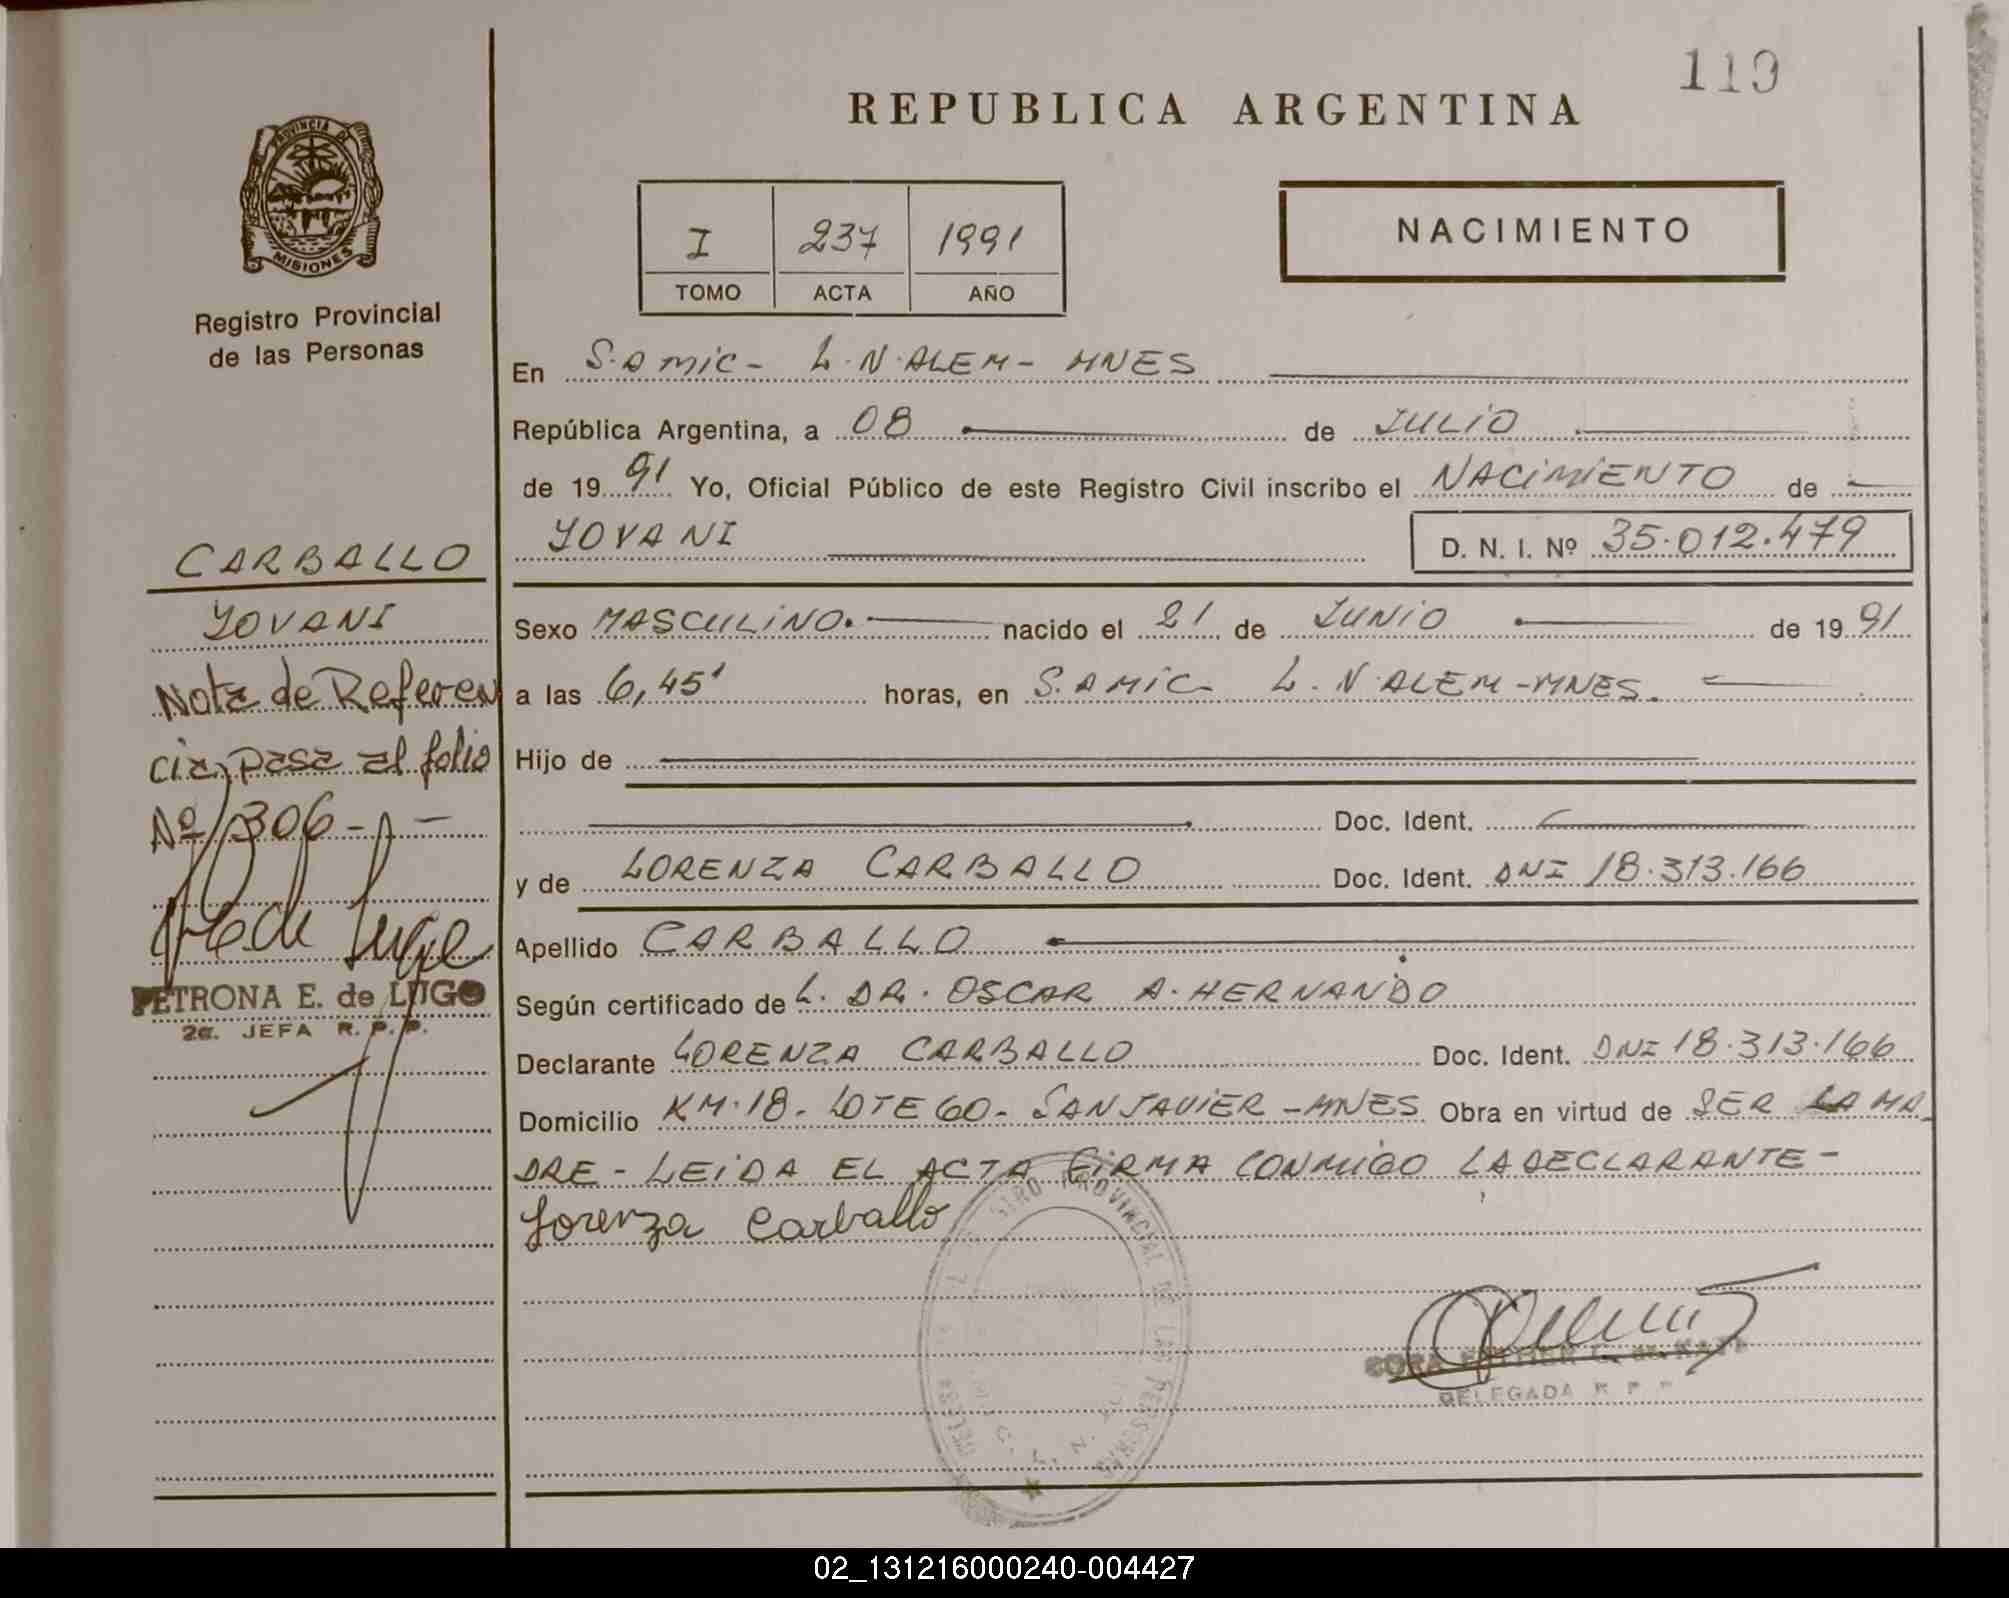 119
REPUBLICA ARGENTINA
PROVINCIA DE
MISIONES
Registro Provincial
de las Personas
I 237 1991
TOMO ACTA AÑO
NACIMIENTO
En S.A MIC - L.N.ALEM - MNES
República Argentina, a 08 de JULIO
de 1991 Yo, Oficial Público de este Registro Civil inscribo el NACIMIENTO de
YOVANI D. N. I. Nº 35.012.479
CARBALLO
YOVANI
Nota de Referen
cia, pasa al folio
Nº 306 - -
PETRONA E. de LUGO
2a. JEFA R. P. P.
Sexo MASCULINO. nacido el 21 de JUNIO de 1991
a las 6,45' horas, en S.A MIC - L.N.ALEM - MNES.
Hijo de
Doc. Ident.
y de LORENZA CARBALLO Doc. Ident. DNI 18.313.166
Apellido CARBALLO
Según certificado de L. DR. OSCAR A. HERNANDO
Declarante LORENZA CARBALLO Doc. Ident. DNI 18.313.166
Domicilio KM.18 - LOTE 60 - SAN JAVIER - MNES Obra en virtud de SER LA MA-
DRE - LEIDA EL ACTA FIRMA CONMIGO LA DECLARANTE -
Lorenza Carballo
PROVINCIAL DE LAS PERSONAS
DELEGADA R. P. P.
02_131216000240-004427